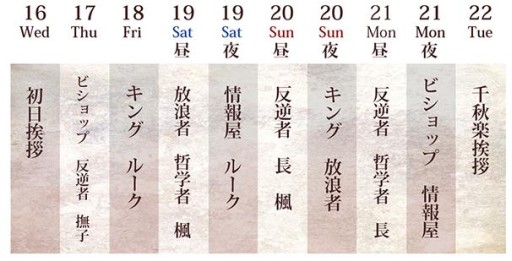 16 17 18 19 19 20 20 21 21 22
Wed Thu Fri Sat Sat Sun Sun Mon Mon Tue
昼 夜 昼 夜 昼 夜
初日挨拶
ビショップ 反逆者 撫子
キング ルーク
放浪者 哲学者 楓
情報屋 ルーク
反逆者 長 楓
キング 放浪者
反逆者 哲学者 長
ビショップ 情報屋
千秋楽挨拶